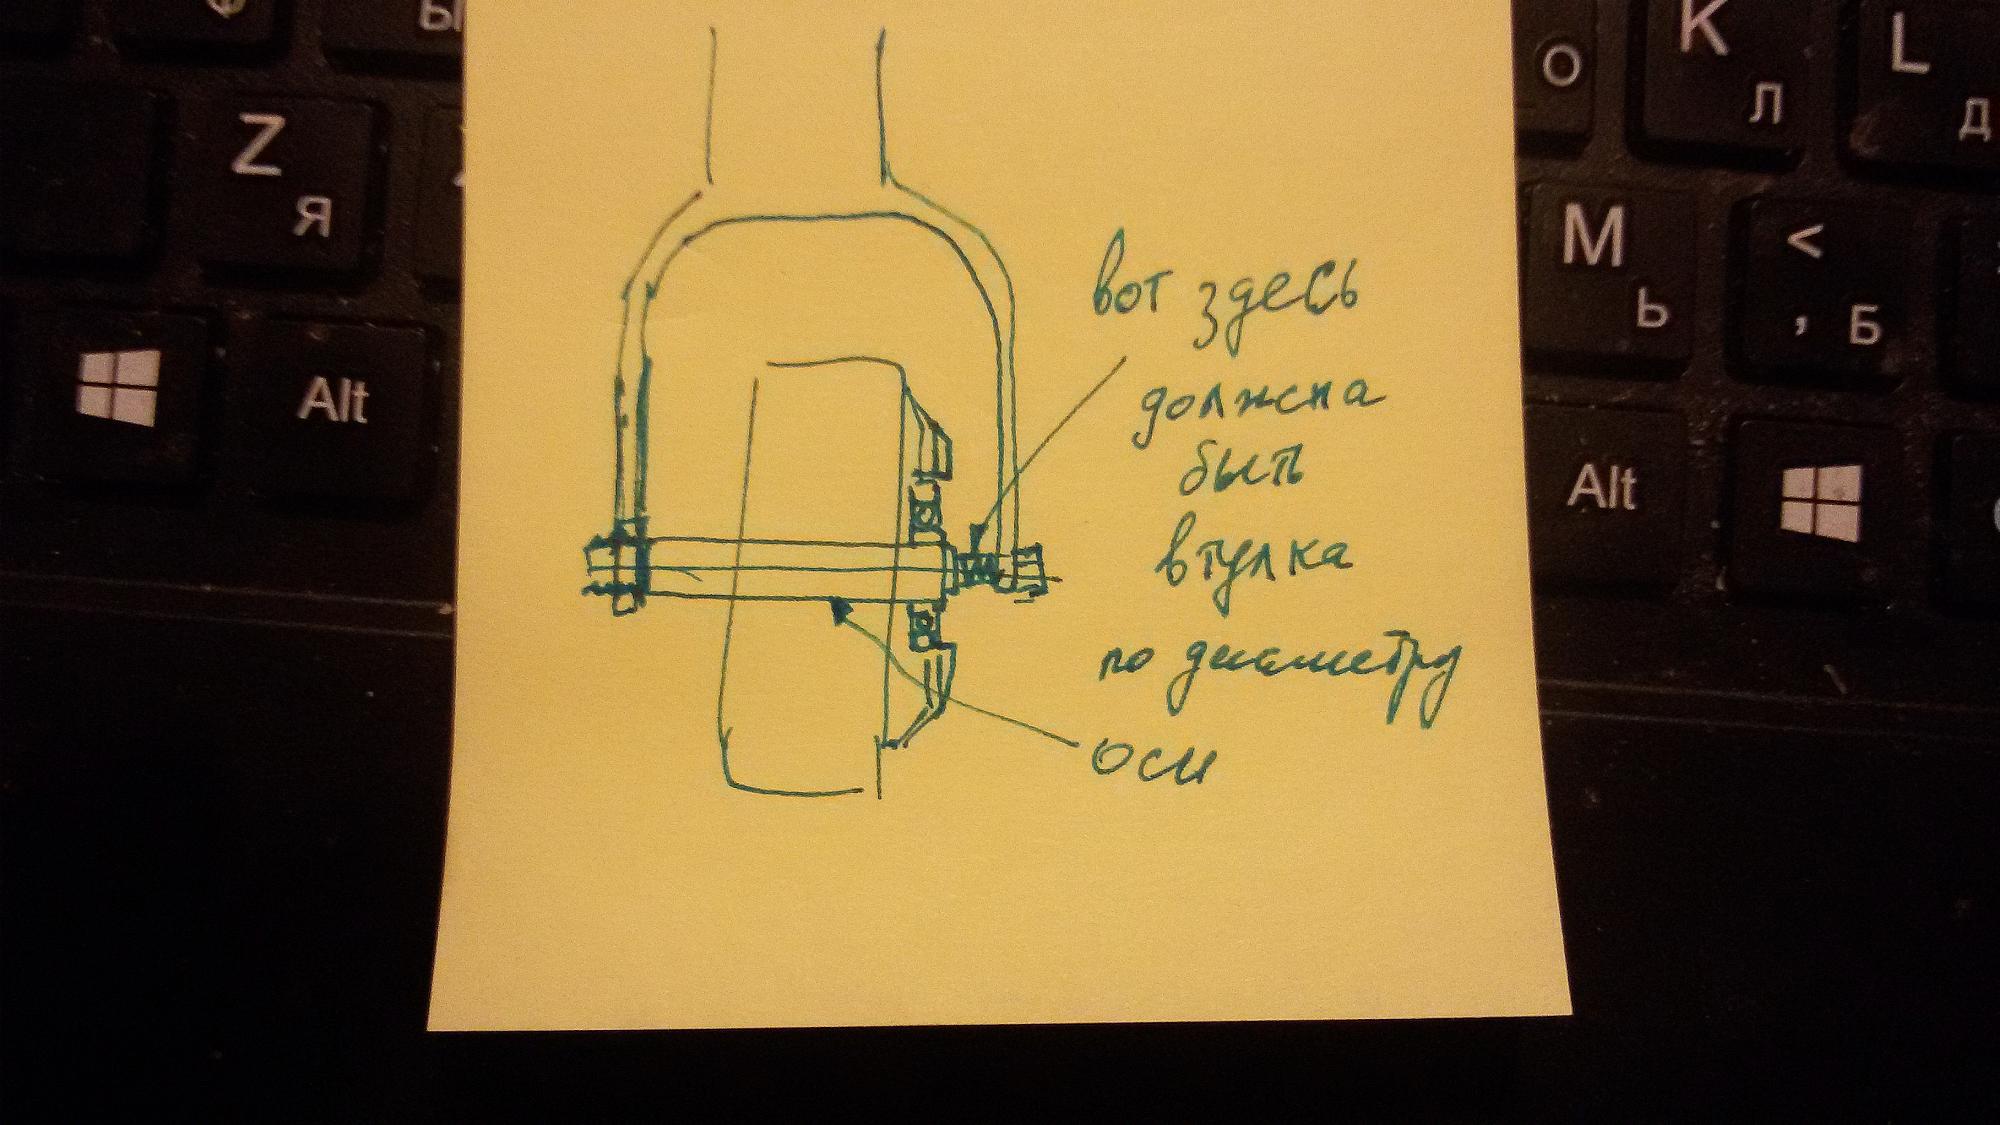 Ф
Ы
О
K
Л
L
Д
Z
Я
M
Ь
<
, Б
Alt
Alt
вот здесь
должна
быть
втулка
по диаметру
оси